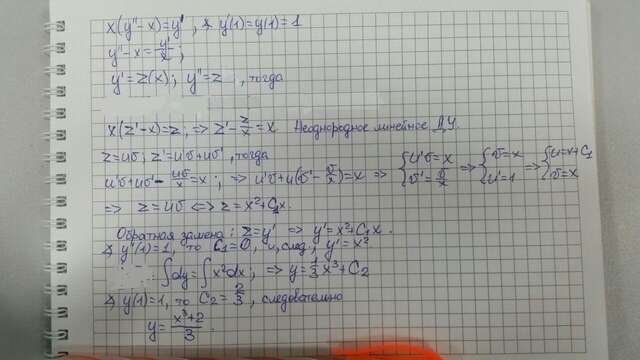 x(y''-x)=y' , & y(1)=y(1)=1
y''-x=y'/x ;
y'=z(x); y''=z , тогда
x(z'-x)=z; => z'-z/x=x Неоднородное линейное ДУ.
z=uv; z'=u'v+uv' , тогда
u'v+uv'-uv/x=x ; => u'v+u(v'-v/x)=x => {u'v=x v'=v/x => {v=x u'=1 => {u=x+C₁ v=x
=> z=uv <=> z=x²+C₁x.
Обратная замена: z=y' => y'=x²+C₁x.
& y'(1)=1, то C₁=0, и, след., y'=x²
∫dy=∫x²dx; => y=1/3 x³+C₂
& y(1)=1, то C₂=2/3, следовательно
y=(x³+2)/3.